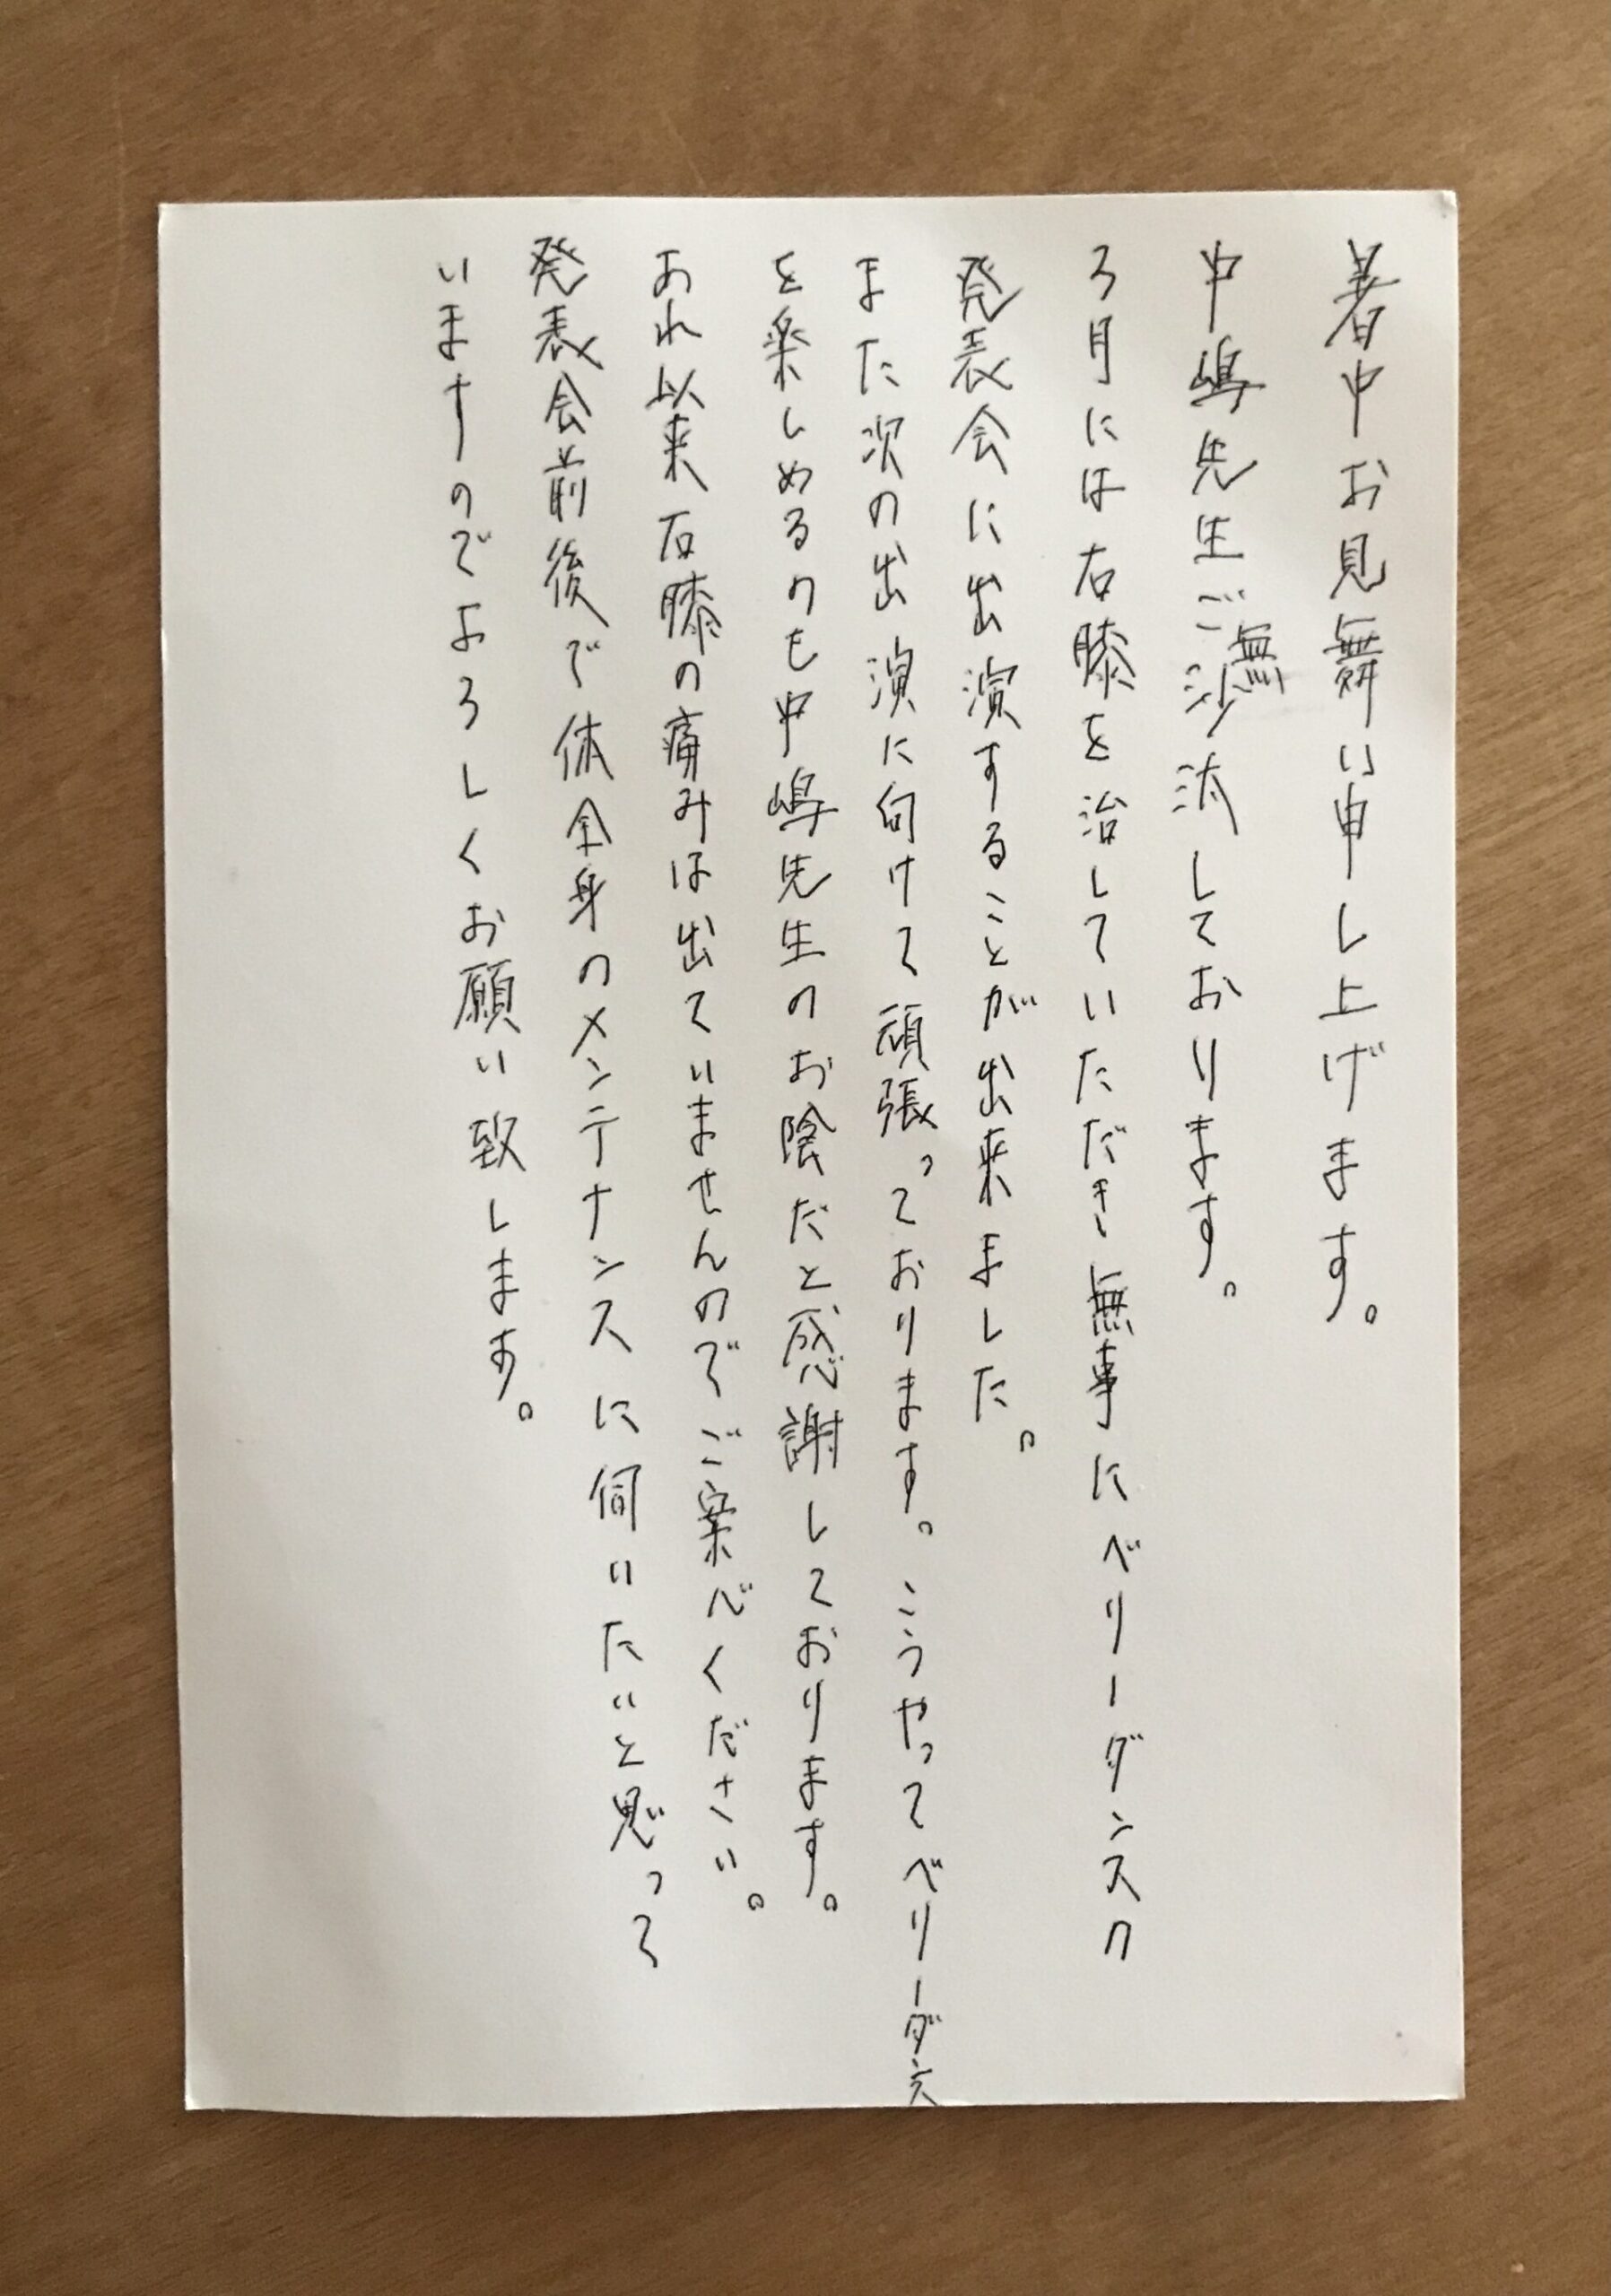 暑中お見舞い申し上げます。
中嶋先生ご無沙汰しております。
3月には右膝を治していただき無事にベリーダンスの
発表会に出演することが出来ました。
また次の出演に向けて頑張っております。こうやってベリーダンス
を楽しめるのも中嶋先生のお陰だと感謝しております。
あれ以来右膝の痛みは出ていませんのでご安心ください。
発表会前後で体全身のメンテナンスに伺いたいと思って
いますのでよろしくお願い致します。